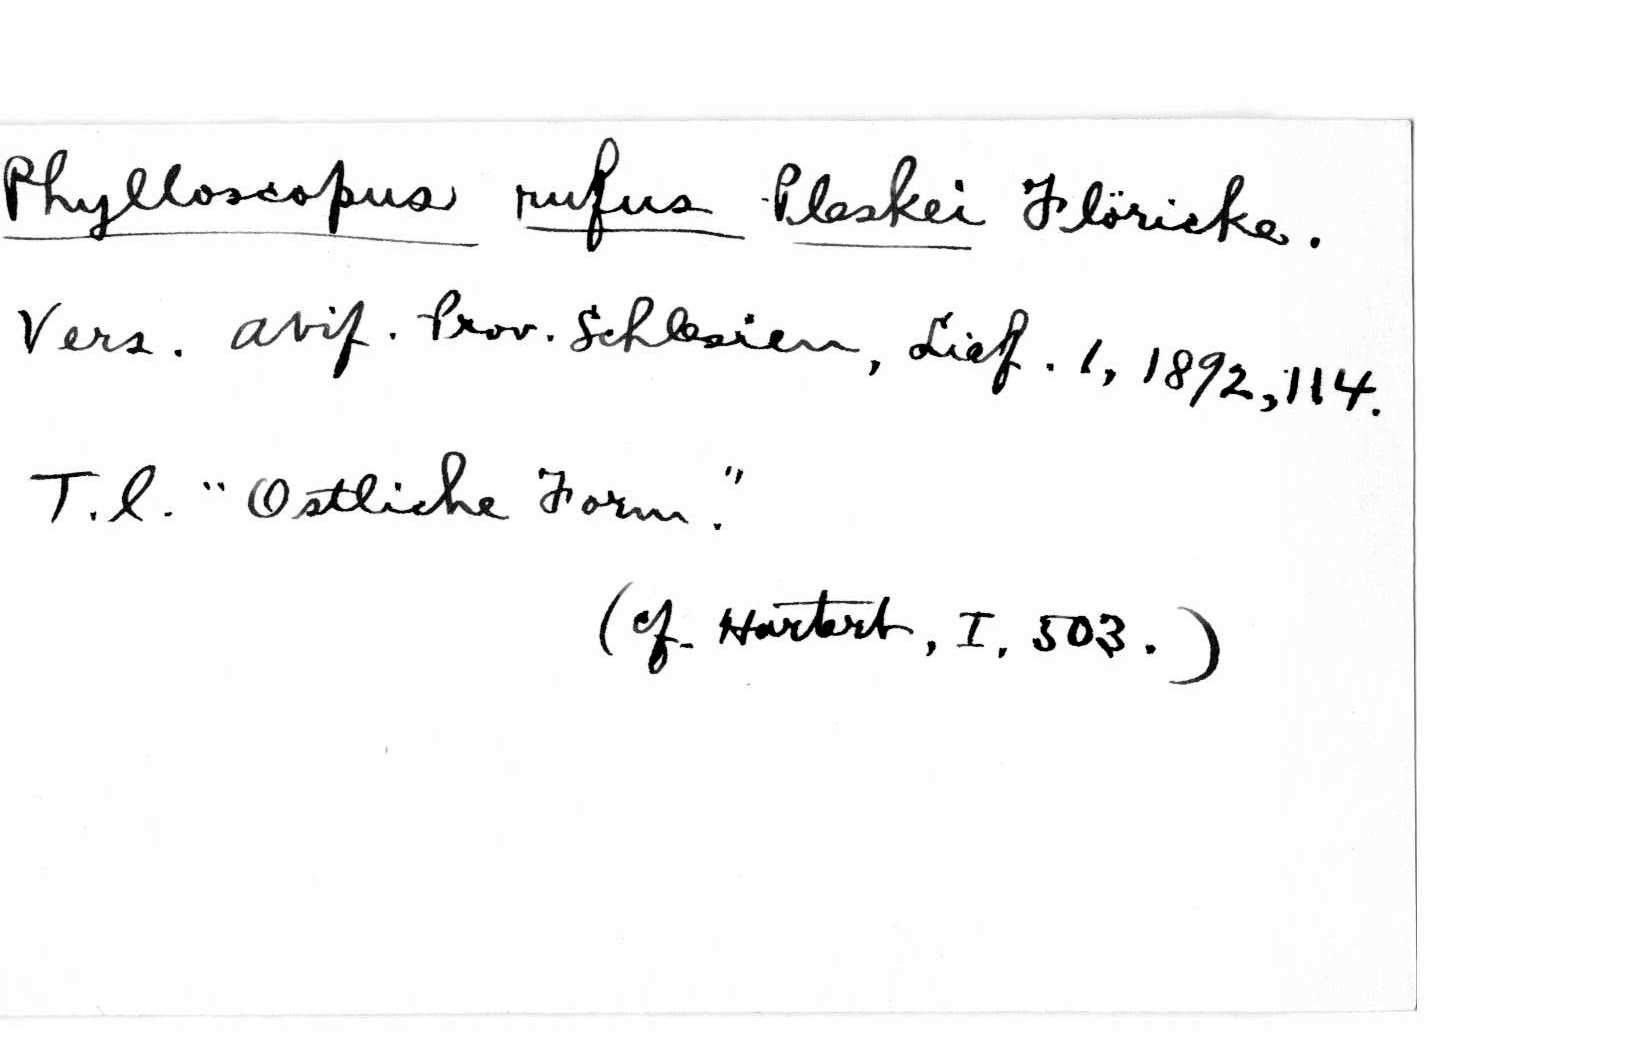 Phylloscopus rufus Pleskei Flöricke.
Vers. avif. Prov. Schlesien, Lief. 1, 1892, 114.
T.l. "Ostliche Form."
(cf. Hartert, I, 503.)